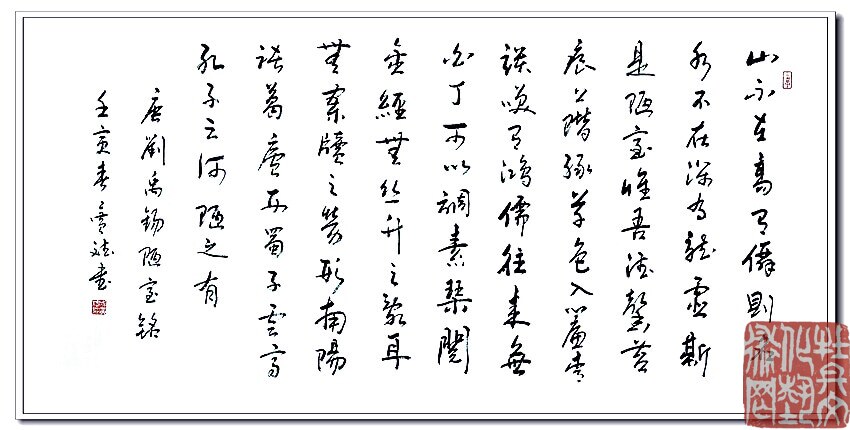 山不在高有僊則名
水不在深有龍靈斯
是陋室惟吾德馨苔
痕上階綠草色入簾青
談笑有鴻儒往來無
白丁可以調素琴閱
金經無絲竹之亂耳
無案牘之勞形南陽
諸葛廬西蜀子雲亭
孔子云何陋之有
唐劉禹錫陋室銘
壬寅春書